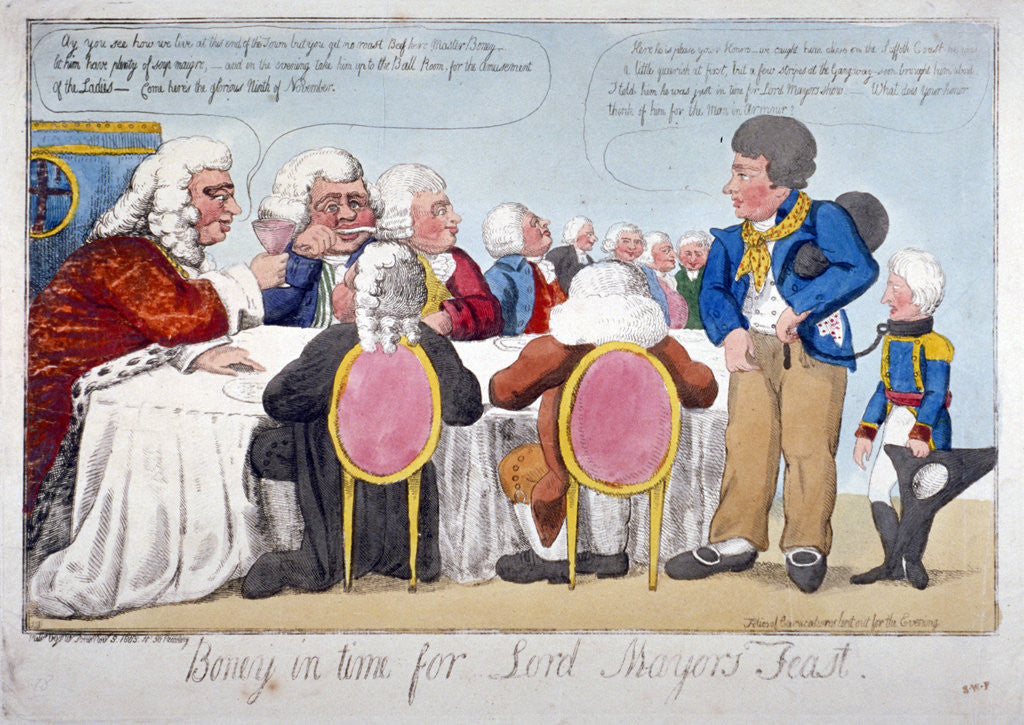 Ay you see how we live at this end of the Town but you get no roast Beef here Master Boney —
let him have plenty of soup maigre, — and in the evening take him up to the Ball Room, for the Amusement
of the Ladies — Come here's the glorious Ninth of November.
Here he is please your Honors — we caught him close on the Suffolk Coast he was
a little queerish at first, but a few stripes at the Gangway soon brought him about
I told him he was just in time for Lord Mayors Show — What does your honor
think of him for the Man in Armour?
Folios of Caracatures lent out for the Evening
Boney in time for Lord Mayors Feast.
S·W·F